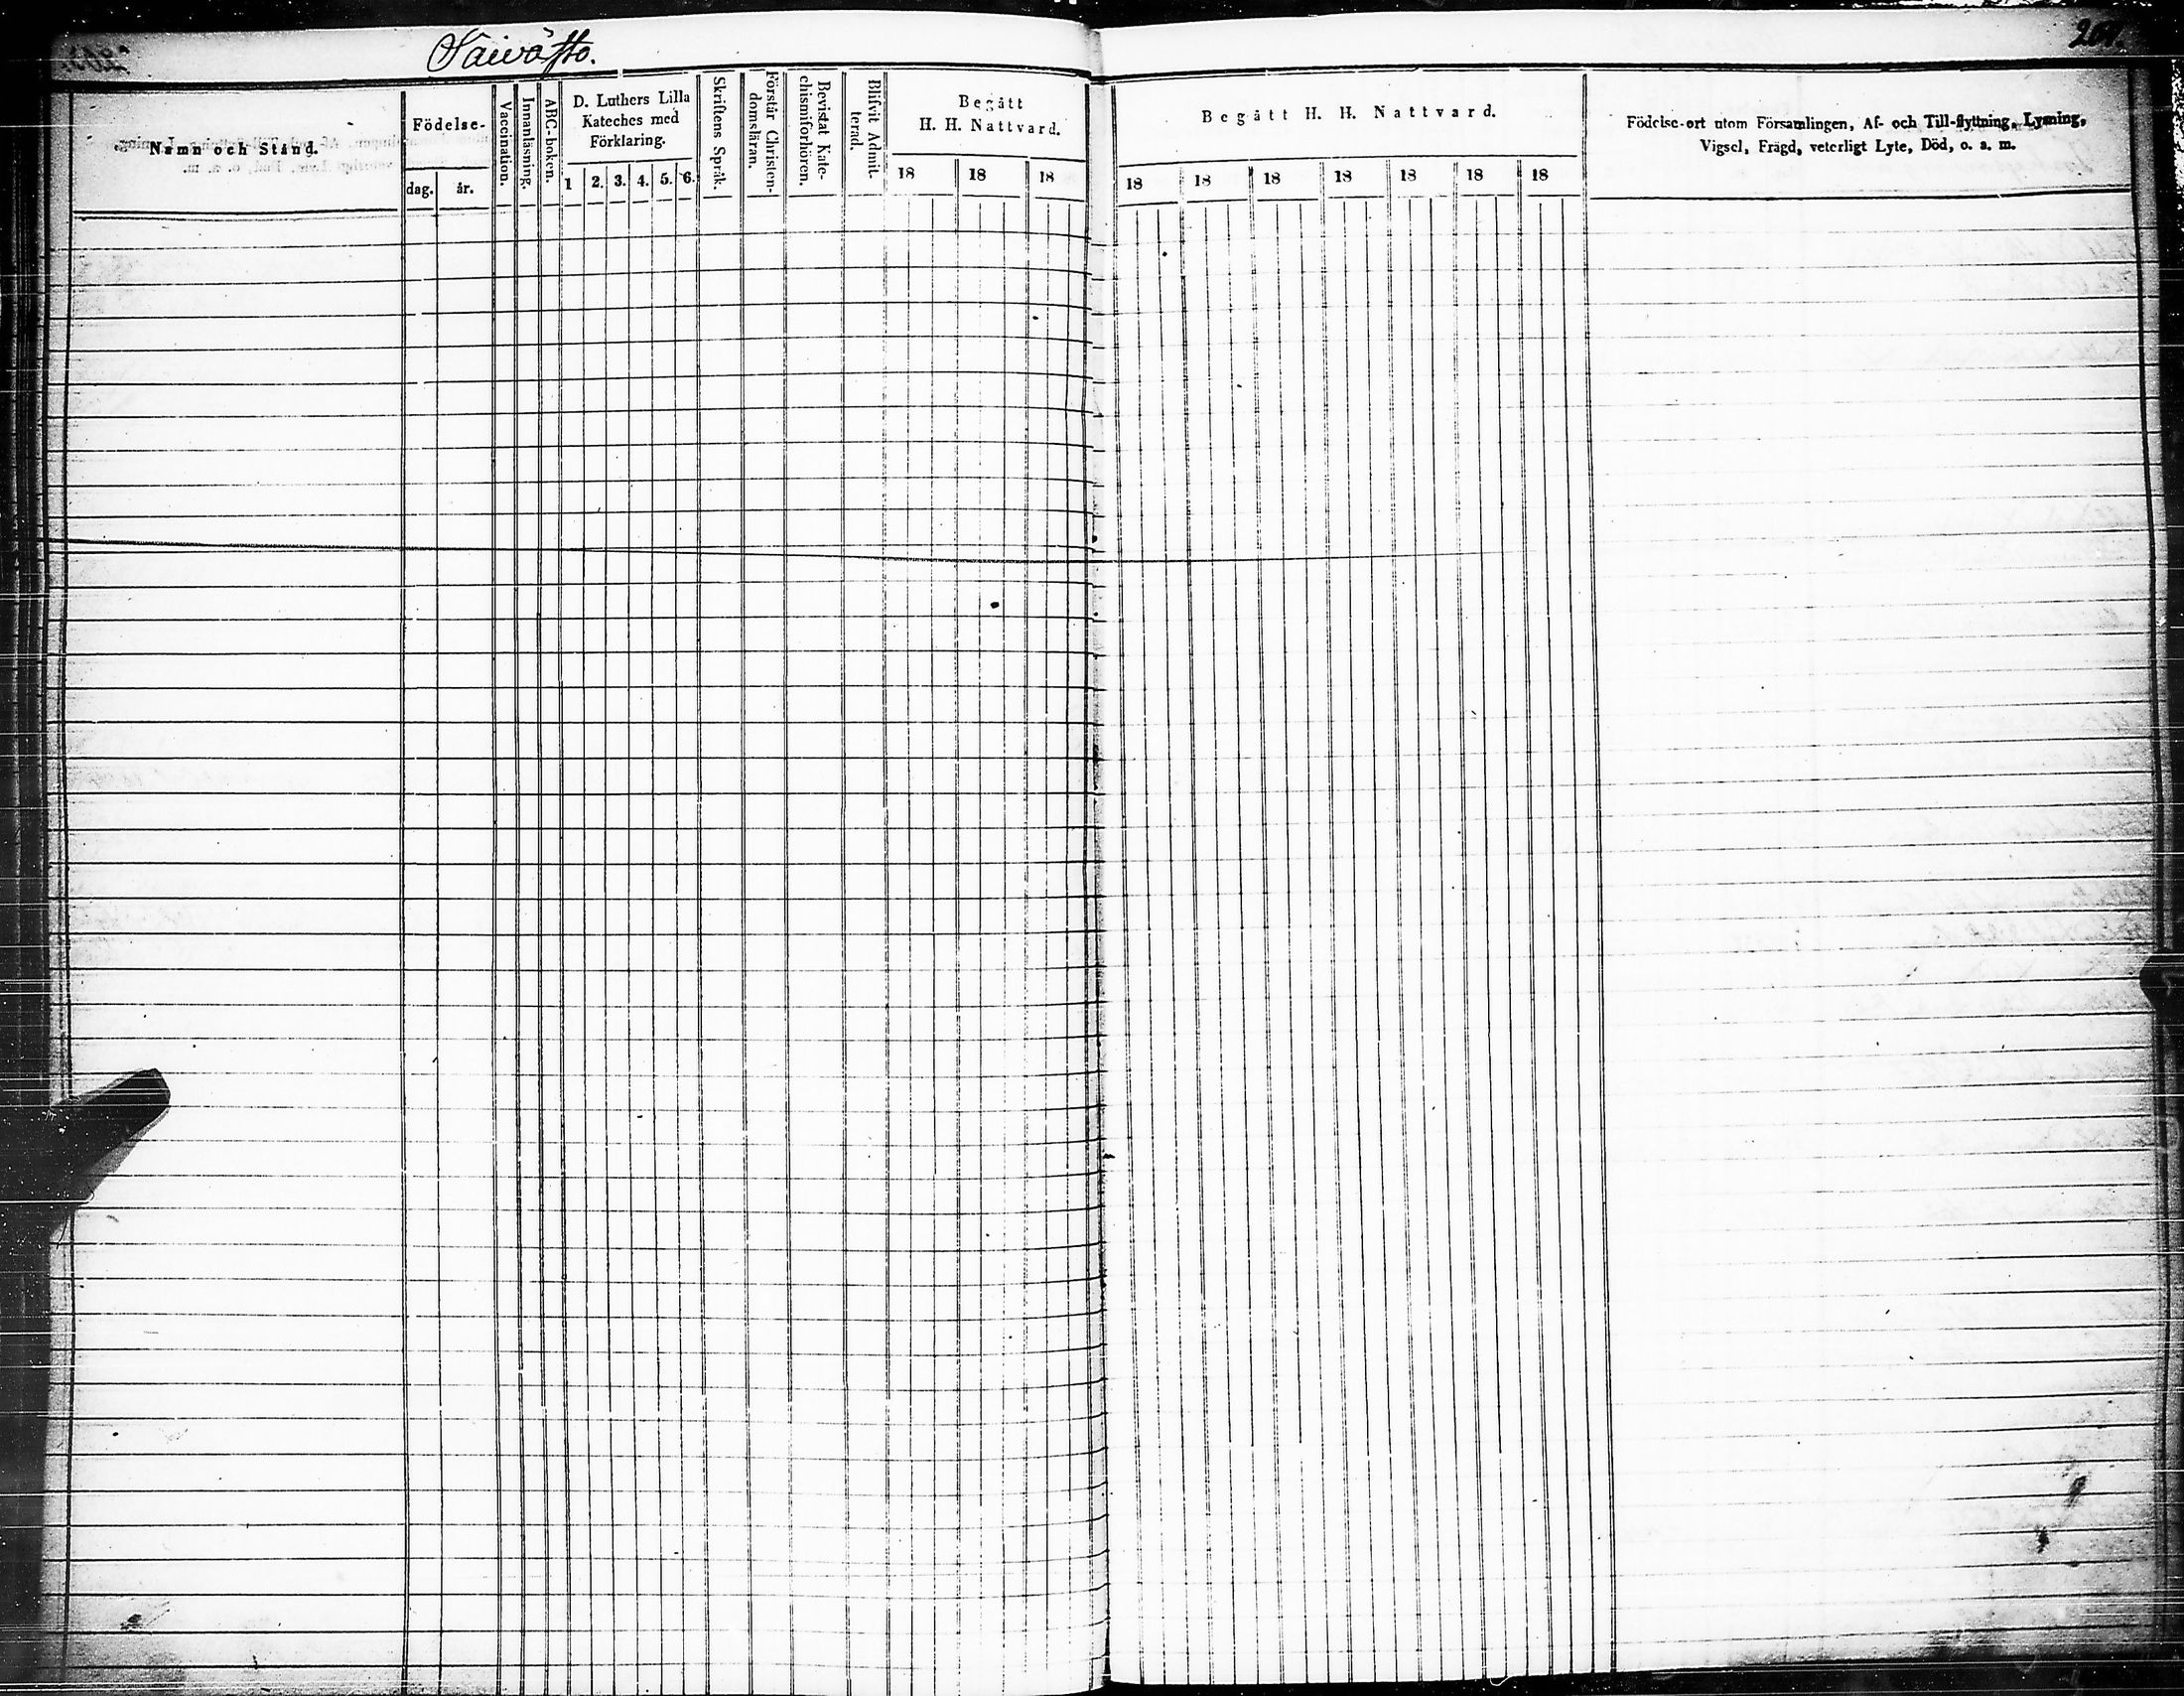 Säivästo.
Namn och Stånd.
Födelse-
dag. år.
Vaccination.
Innanläsning.
ABC-boken.
D. Luthers Lilla
Kateches med
Förklaring.
1 2. 3. 4. 5. 6.
Skriftens Språk.
Förstår Christen-
domsläran.
Bevistat Kate-
chismiförhören.
Blifvit Admit-
terad.
Begått
H. H. Nattvard.
18 18 18
Begått H. H. Nattvard.
18 18 18 18 18 18 18
Födelse-ort utom Församlingen, Af- och Till-flyttning, Lysning,
Vigsel, Frägd, veterligt Lyte, Död, o. s. m.